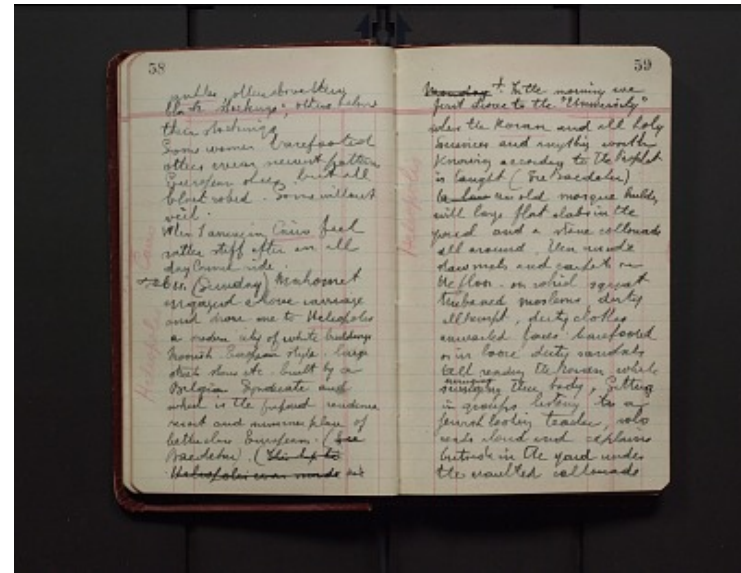 58
black stockings, others below
their stockings
Some women barefooted
others wear newest pattern
European shoes, but all
black robed. Some without
veil.
in Cairo feel
rather stiff after an all
day Camel ride.
(Sunday) Mahomet
engaged above carriage
and drove me to Heliopolis
a modern city of white buildings
Moorish European style. large
built by a
Belgian Syndicate and
which is the residence
resort and summer place of
better class European. (See
Baedeker. (This trip to
Heliopolis was made
Cairo
Heliopolis
59
Monday + In the morning we
first drove to the "University"
where the Koran and all holy
sciences and anything worth
knowing according to the Prophet
is taught (See Baedeker)
an old mosque building
with large flat slabs in the
yard and a stone collonade
all around.
straw mats and carpet on
the floor. on which squat
turbaned moslems, dirty
unwashed faces barefooted
or in loose dirty sandals
all reading the Koran while
swinging their body, Sitting
in groups listening to a
jewish looking teacher, who
reads aloud and explains
outside in the yard under
the vaulted collonade
Heliopolis